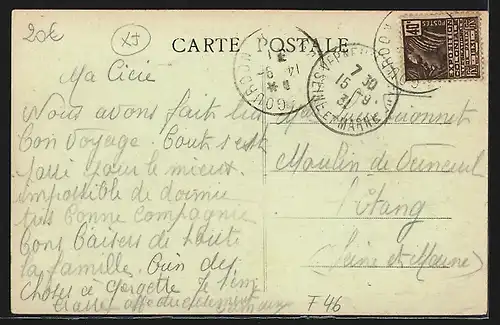 20€
XJ
CARTE POSTALE
GOURDON
14 - 9
7 30
15 - 9
31
SEINE ET MARNE
GOURDON
EXPOSITION COLONIALE INTERNATIONALE
POSTES
40c
Ma Cicie
Nous avons fait un
bon voyage. Tout s'est
passé pour le mieux
impossible de dormir
très bonne compagnie
Bons Baisers de toute
la famille. Bien des
choses à Georgette je
affectueusement
Moulin de Verneuil
l'Etang
(Seine et Marne)
F 46